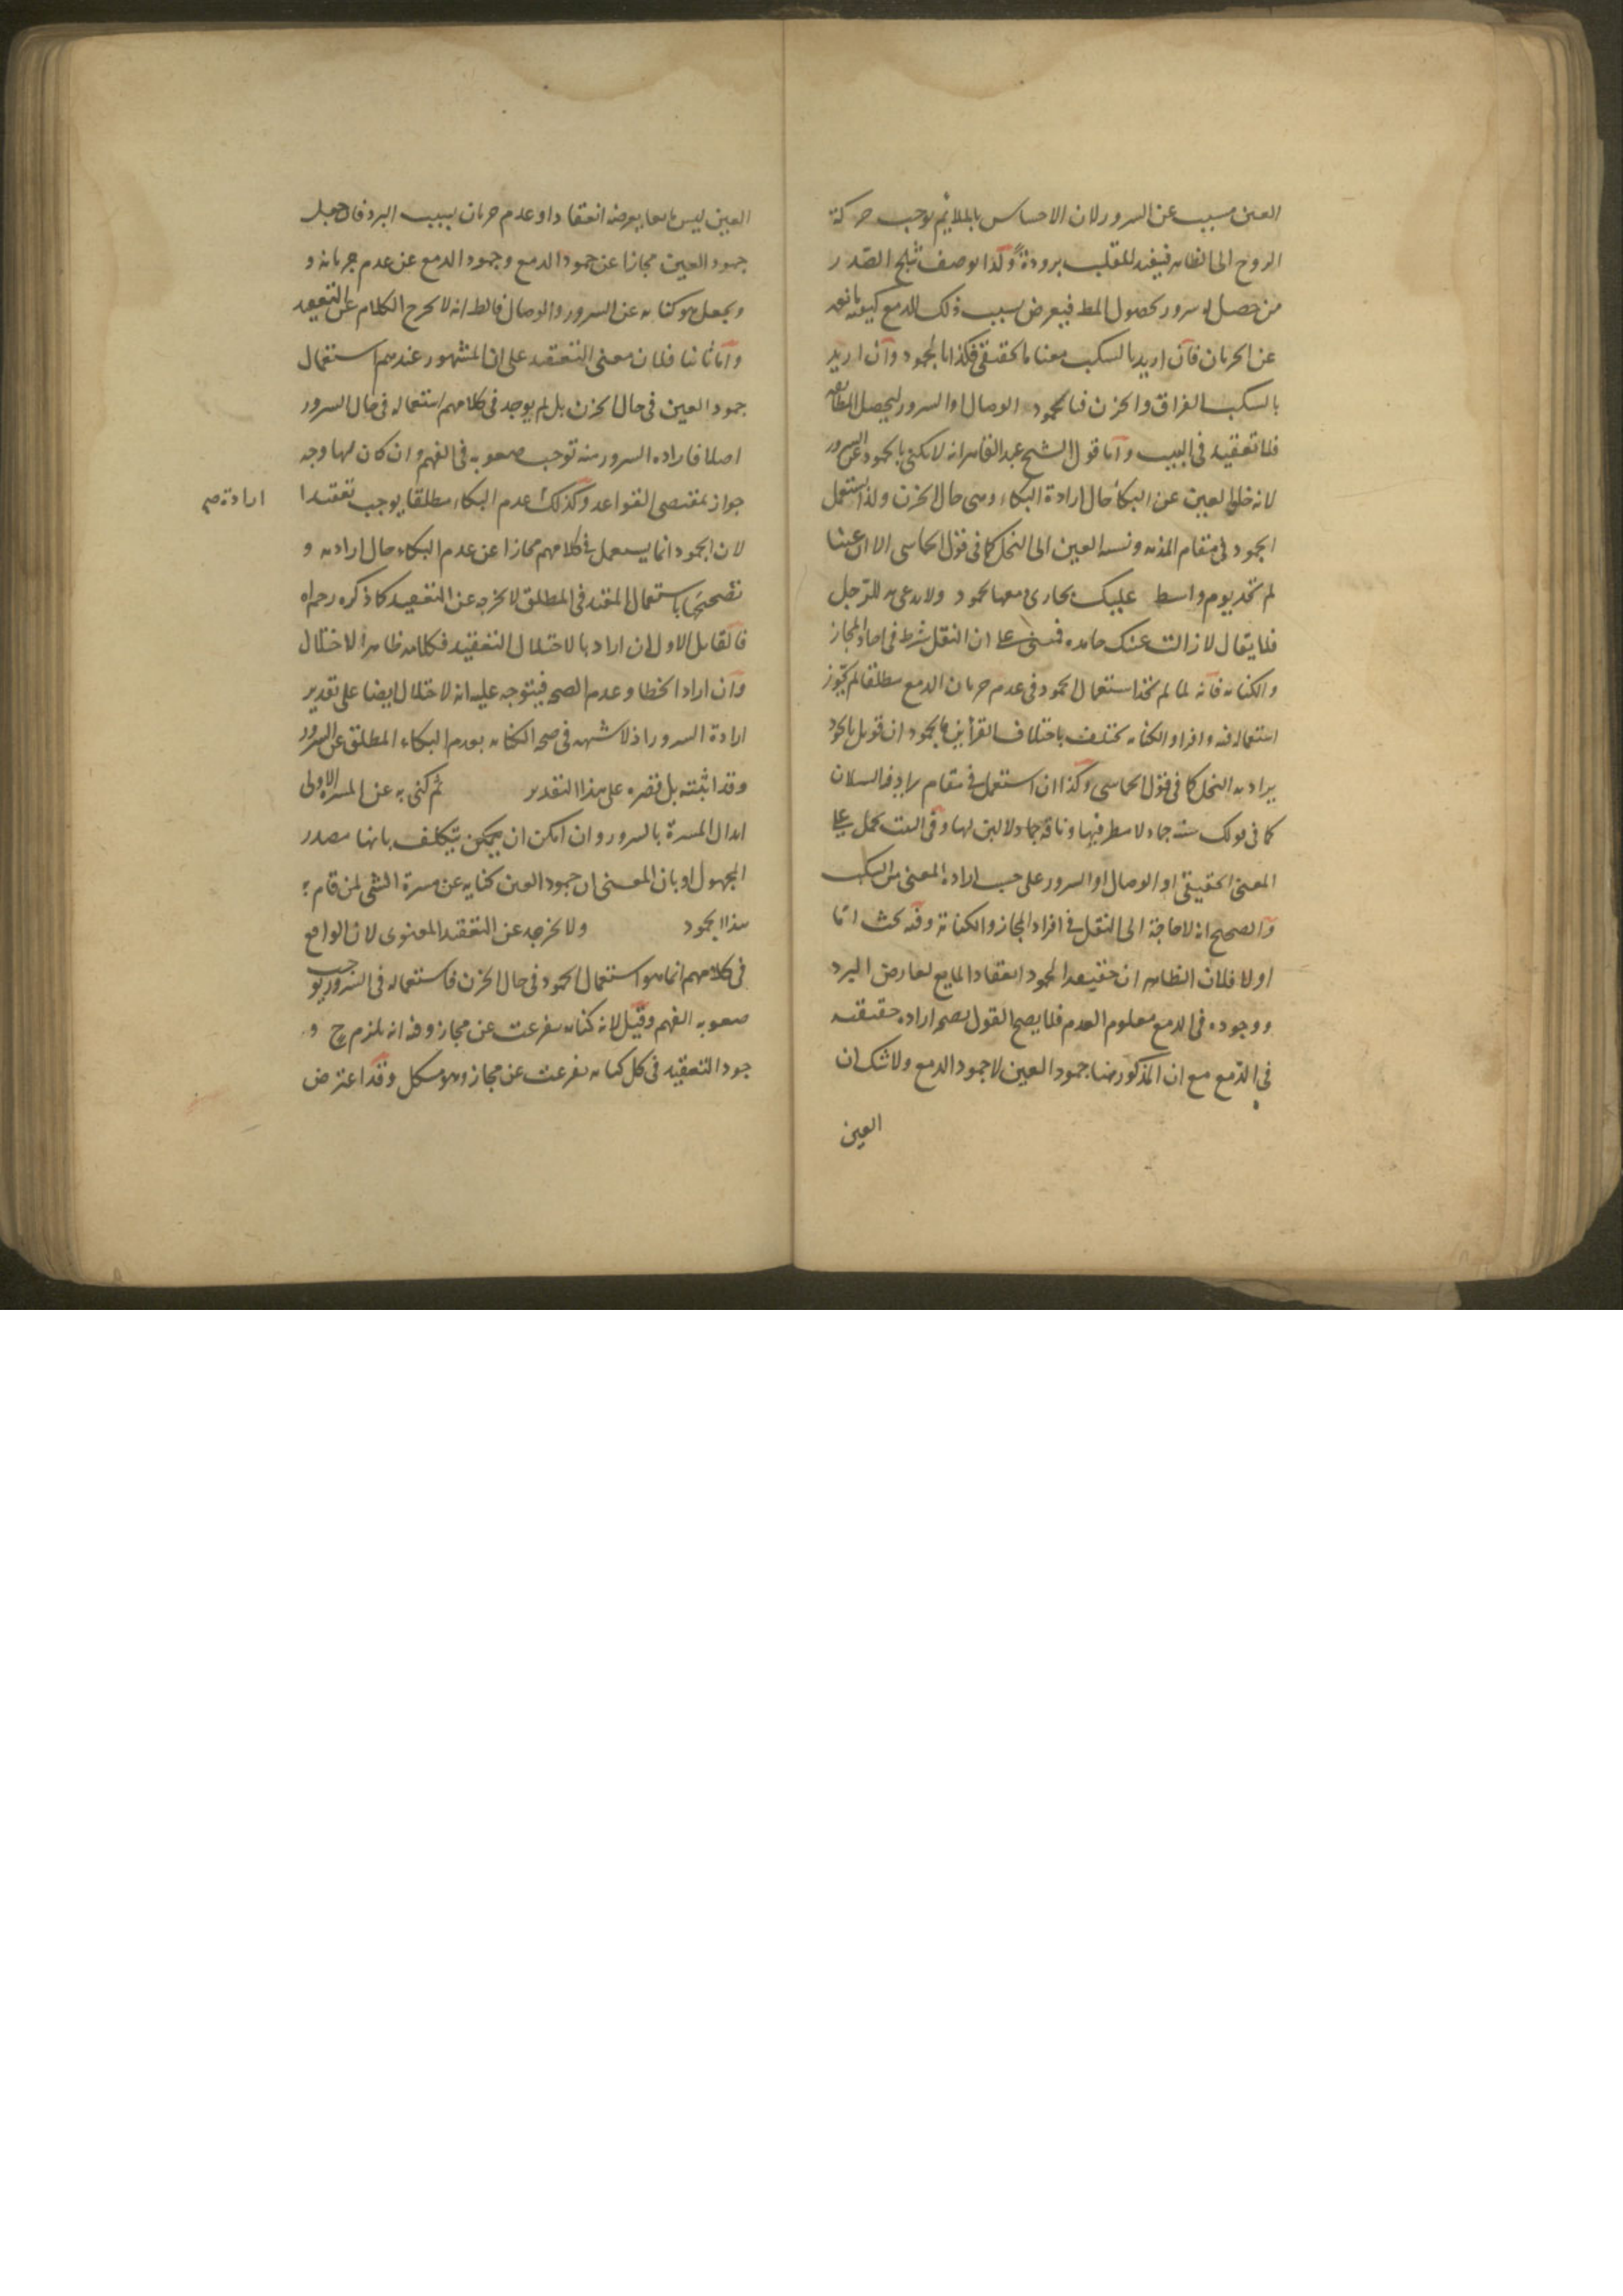 العين مسبب عن السرور لان الاحساس بالملايم يوجب حركة
الروح الى الظاهر فيفيد للقلب برودة وكذا يوصف بثلج الصدر
من حصل له سرور بحصول المط فيعرض بسبب ذلك للدمع كيفية مانعة
عن الجريان فان اريد بالسكب معناه الحقيقي فكذا بالجمود وان اريد
بالسكب الفراق والحزن فبالجمود الوصال او السرور ليحصل المطابقة
فلا تعقيد في البيت واما قول الشيخ عبد القاهر انه لا يكنى بالجمود عن السرور
لانه خلو العين عن البكاء حال ارادة البكاء وهي حال الحزن ولذا استعمل
الجمود في مقام المذمة ونسبة العين الى البخل كما في قول الحماسي الا ان عينا
لم تجد يوم واسط عليك بجاري دمعها لجمود ولا يدعى به للرجل
فلا يقال لا زالت عينك جامدة فمبني على ان النقل شرط في احاد المجاز
والكناية فانه لما لم نجد استعمال الجمود في عدم جريان الدمع مطلقا لم يجوز
استعماله فيه وافراد الكناية تختلف باختلاف القراين فالجمود ان قوبل بالجود
يراد به البخل كما في قول الحماسي وكذا ان استعمل في مقام يراد فيه السيلان
كما في قولك سنة جماد لا مطر فيها وناقة جماد لا لبن لها وفي البيت يحمل على
المعنى الحقيقي او الوصال او السرور على حسب ارادة المعنى من السكب
والصحيح انه لا حاجة الى النقل في افراد المجاز والكناية وفيه بحث اما
اولا فلان الظاهر ان حقيقة الجمود انعقاد المايع لعارض البرد
ووجوده في الدمع معلوم العدم فلا يصح القول بصحة ارادة حقيقته
في الدمع مع ان المذكور ههنا جمود العين لا جمود الدمع ولا شك ان
العين
العين ليس مايعا يعرضه انعقاد او عدم جريان بسبب البرد فان جعل
جمود العين مجازا عن جمود الدمع وجمود الدمع عن عدم جريانه و
يجعل هو كناية عن السرور والوصال فالظ انه لا يخرج الكلام عن التعقيد
واما ثانيا فلان معنى التعقيد على ان المشهور عندهم استعمال
جمود العين في حال الحزن بل لم يوجد في كلامهم استعماله في حال السرور
اصلا فارادة السرور منه توجب صعوبة في الفهم وان كان لها وجه
جواز بمقتضى القواعد وكذلك عدم البكاء مطلقا يوجب تعقيدا
ارادة صح
لان الجمود انما يستعمل في كلامهم مجازا عن عدم البكاء حال ارادته و
تصحيحها باستعمال المقيد في المطلق لا يخرجه عن التعقيد كما ذكره رحمه الله
فالقايل الاول ان اراد بالاختلال التعقيد فكلامه ظاهر الاختلال
وان اراد الخطا وعدم الصحة فيتوجه عليه انه لا اختلال ايضا على تقدير
ارادة السرور اذ لا شبهة في صحة الكناية بعدم البكاء المطلق عن السرور
وقد اثبته بل قصره على هذا التقدير ثم كنى به عن المسرة الاولى
ابدال المسرة بالسرور وان امكن ان يتكلف بانها مصدر
المجهول او بان المعنى ان جمود العين كناية عن مسرة الشي لمن قام به
هذا الجمود ولا يخرجه عن التعقيد المعنوى لان الواقع
في كلامهم انما هو استعمال الجمود في حال الحزن فاستعماله في السرور يوجب
صعوبة الفهم وقيل لانه كناية تفرعت عن مجاز وفيه انه يلزم ح و
جود التعقيد في كل كناية تفرعت عن مجاز وهو مشكل وقد اعترض